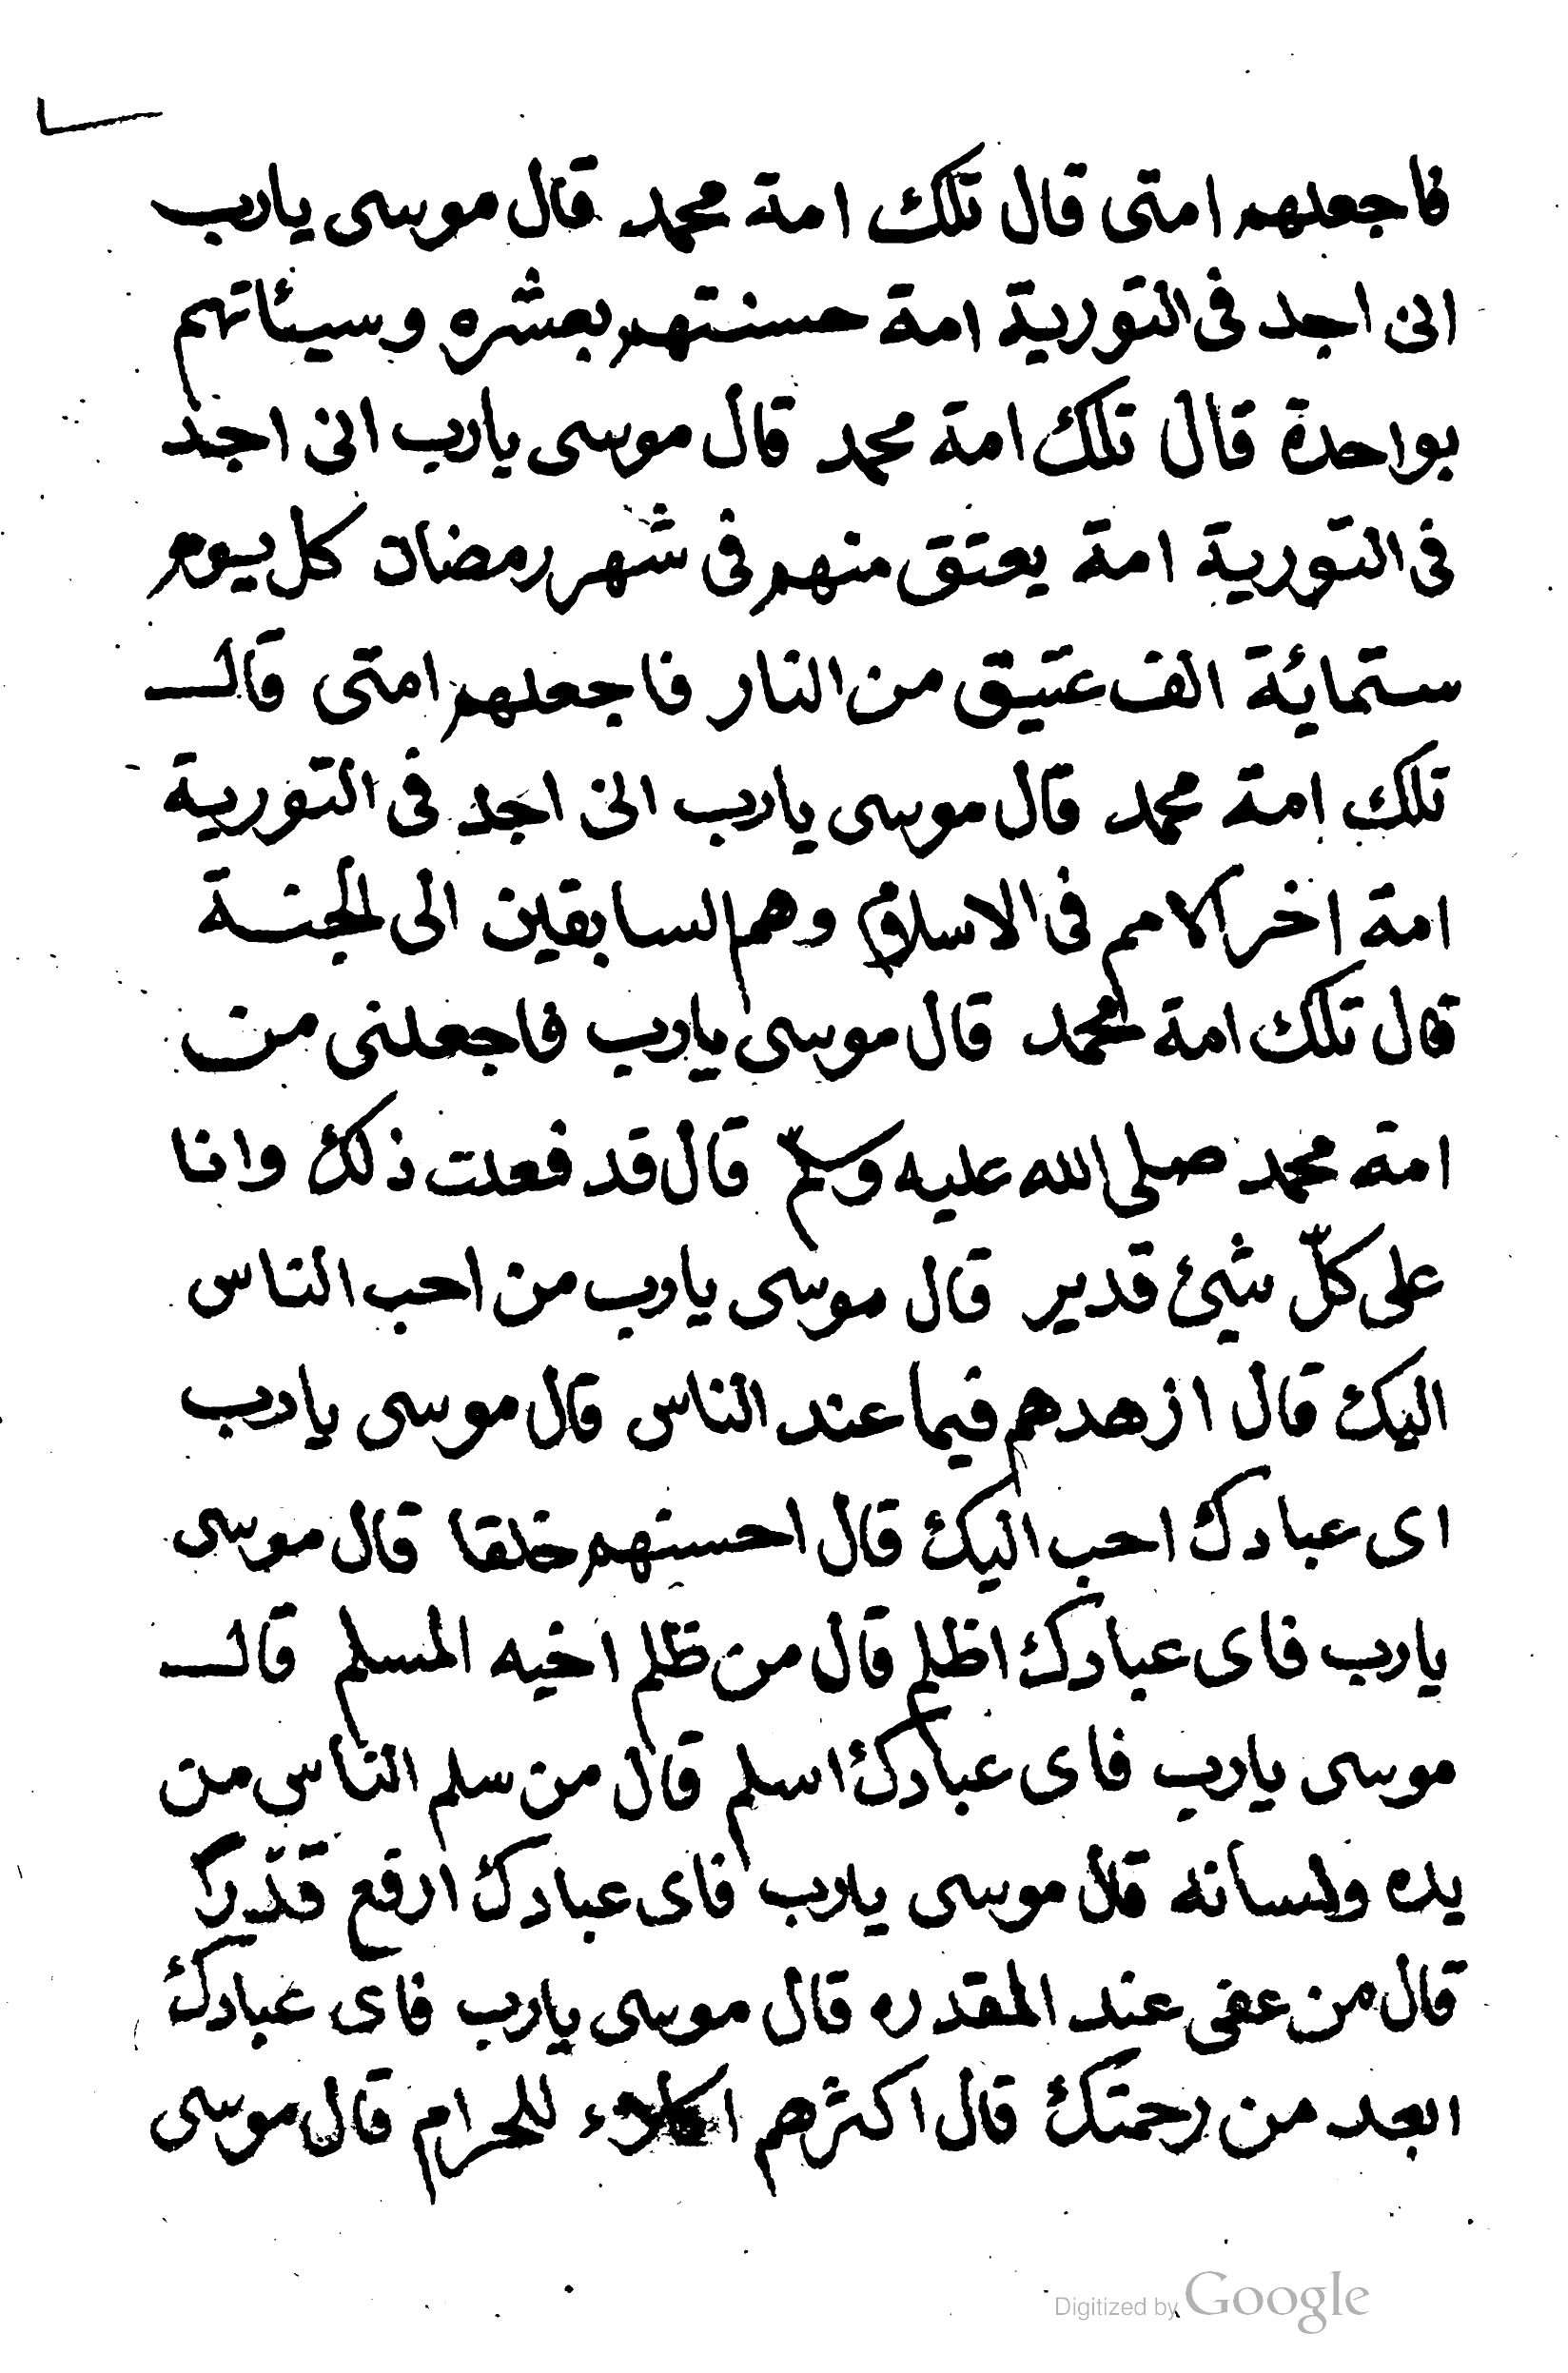 فاجعلهم امتى قال تلك امة محمد قال موسى يارب
انى اجد فى التورية امة حسنتهم بعشره وسيئاتهم
بواحدة قال تلك امة محمد قال موسى يارب انى اجد
فى التورية امة يعتق منهم فى شهر رمضان كل يوم
ستمائة الف عتيق من النار فاجعلهم امتى قال
تلك امة محمد قال موسى يارب انى اجد فى التورية
امة اخر الامم فى الاسلام وهم السابقين الى الجنة
قال تلك امة محمد قال موسى يارب فاجعلنى من
امة محمد صلى الله عليه وسلّم قال قد فعلت ذلك وانا
على كلّ شئ قدير قال موسى يارب من احب الناس
اليك قال ازهدهم فيما عند الناس قال موسى يارب
اى عبادك احب اليك قال احسنهم خلقا قال موسى
يارب فاى عبادك اظلم قال من ظلم اخيه المسلم قال
موسى يارب فاى عبادك اسلم قال من سلم الناس من
يده ولسانه قال موسى يارب فاى عبادك ارفع قدّرا
قال من عفى عند المقدره قال موسى يارب فاى عبادك
ابعد من رحمتك قال اكثرهم للحرام قال موسى
Digitized by Google